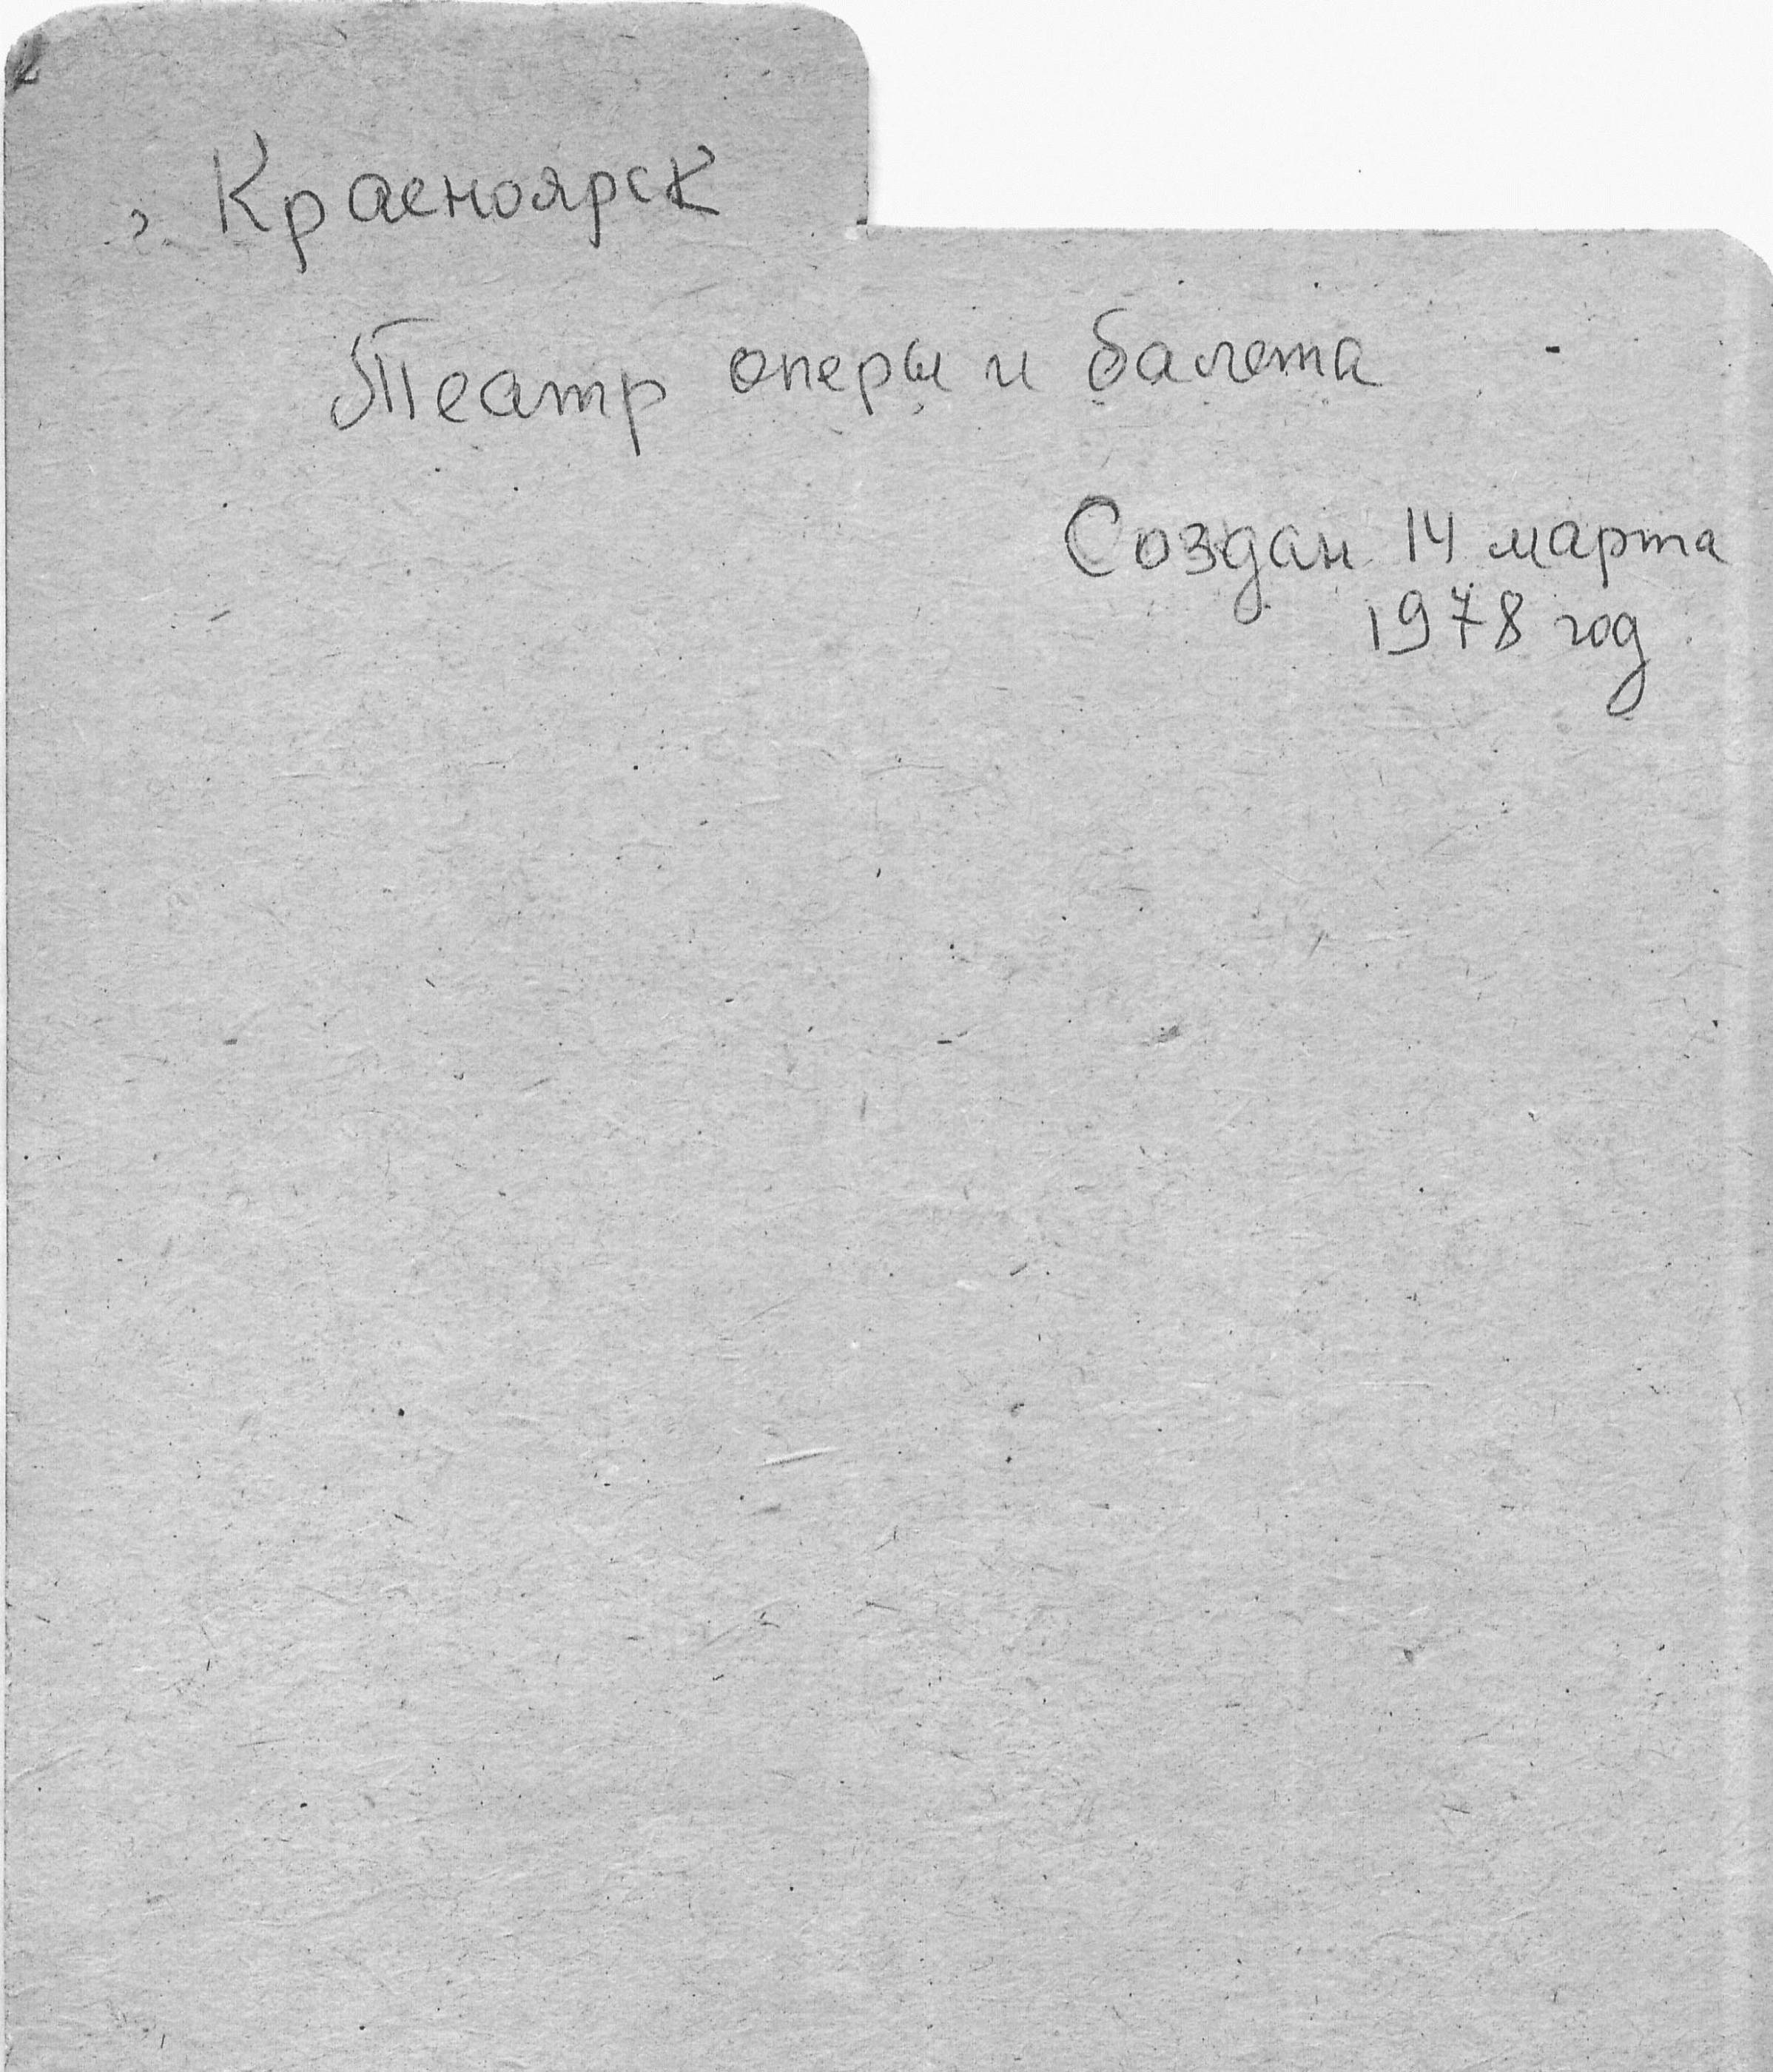 г. Красноярск
Театр оперы и балета
Создан 14 марта
1978 год